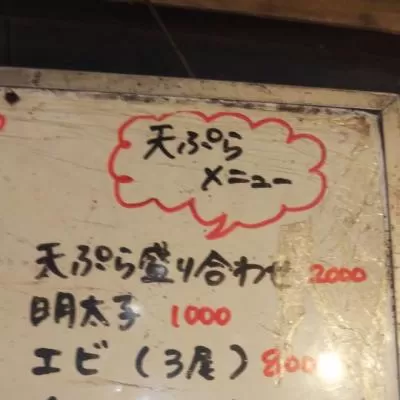 天ぷら
メニュー
天ぷら盛り合わせ 2000
明太子 1000
エビ(3尾) 800